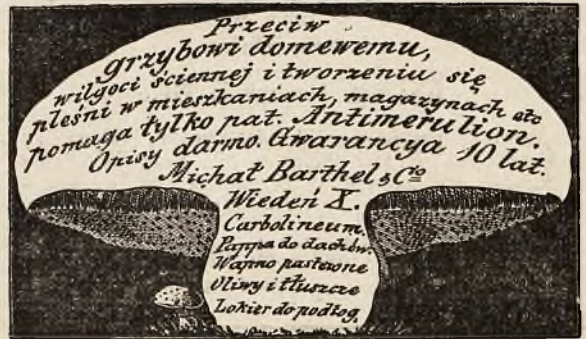 Przeciw
grzybowi domewemu,
wilgoci ściennej i tworzeniu się
pleśni w mieszkaniach, magazynach etc
pomaga tylko pat. Antimerulion.
Opisy darmo. Gwarancya 10 lat.
Michał Barthel & Cio
Wiedeń X.
Carbolineum.
Pappa do dachów.
Wapno pastewne
Oliwy i tłuszcze
Lokier do podłog.